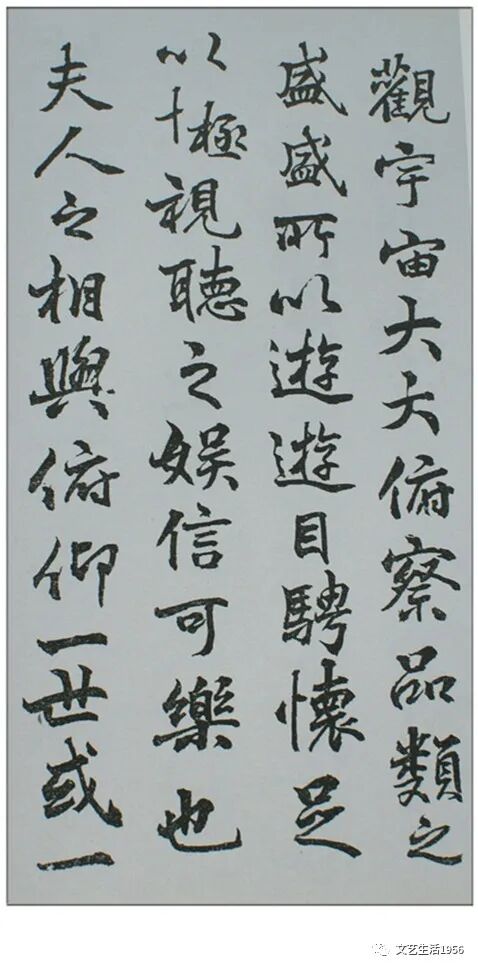 觀宇宙大大俯察品類之
盛盛所以遊遊目騁懷足
以十極視聽之娛信可樂也
夫人之相與俯仰一世或一
文艺生活1956